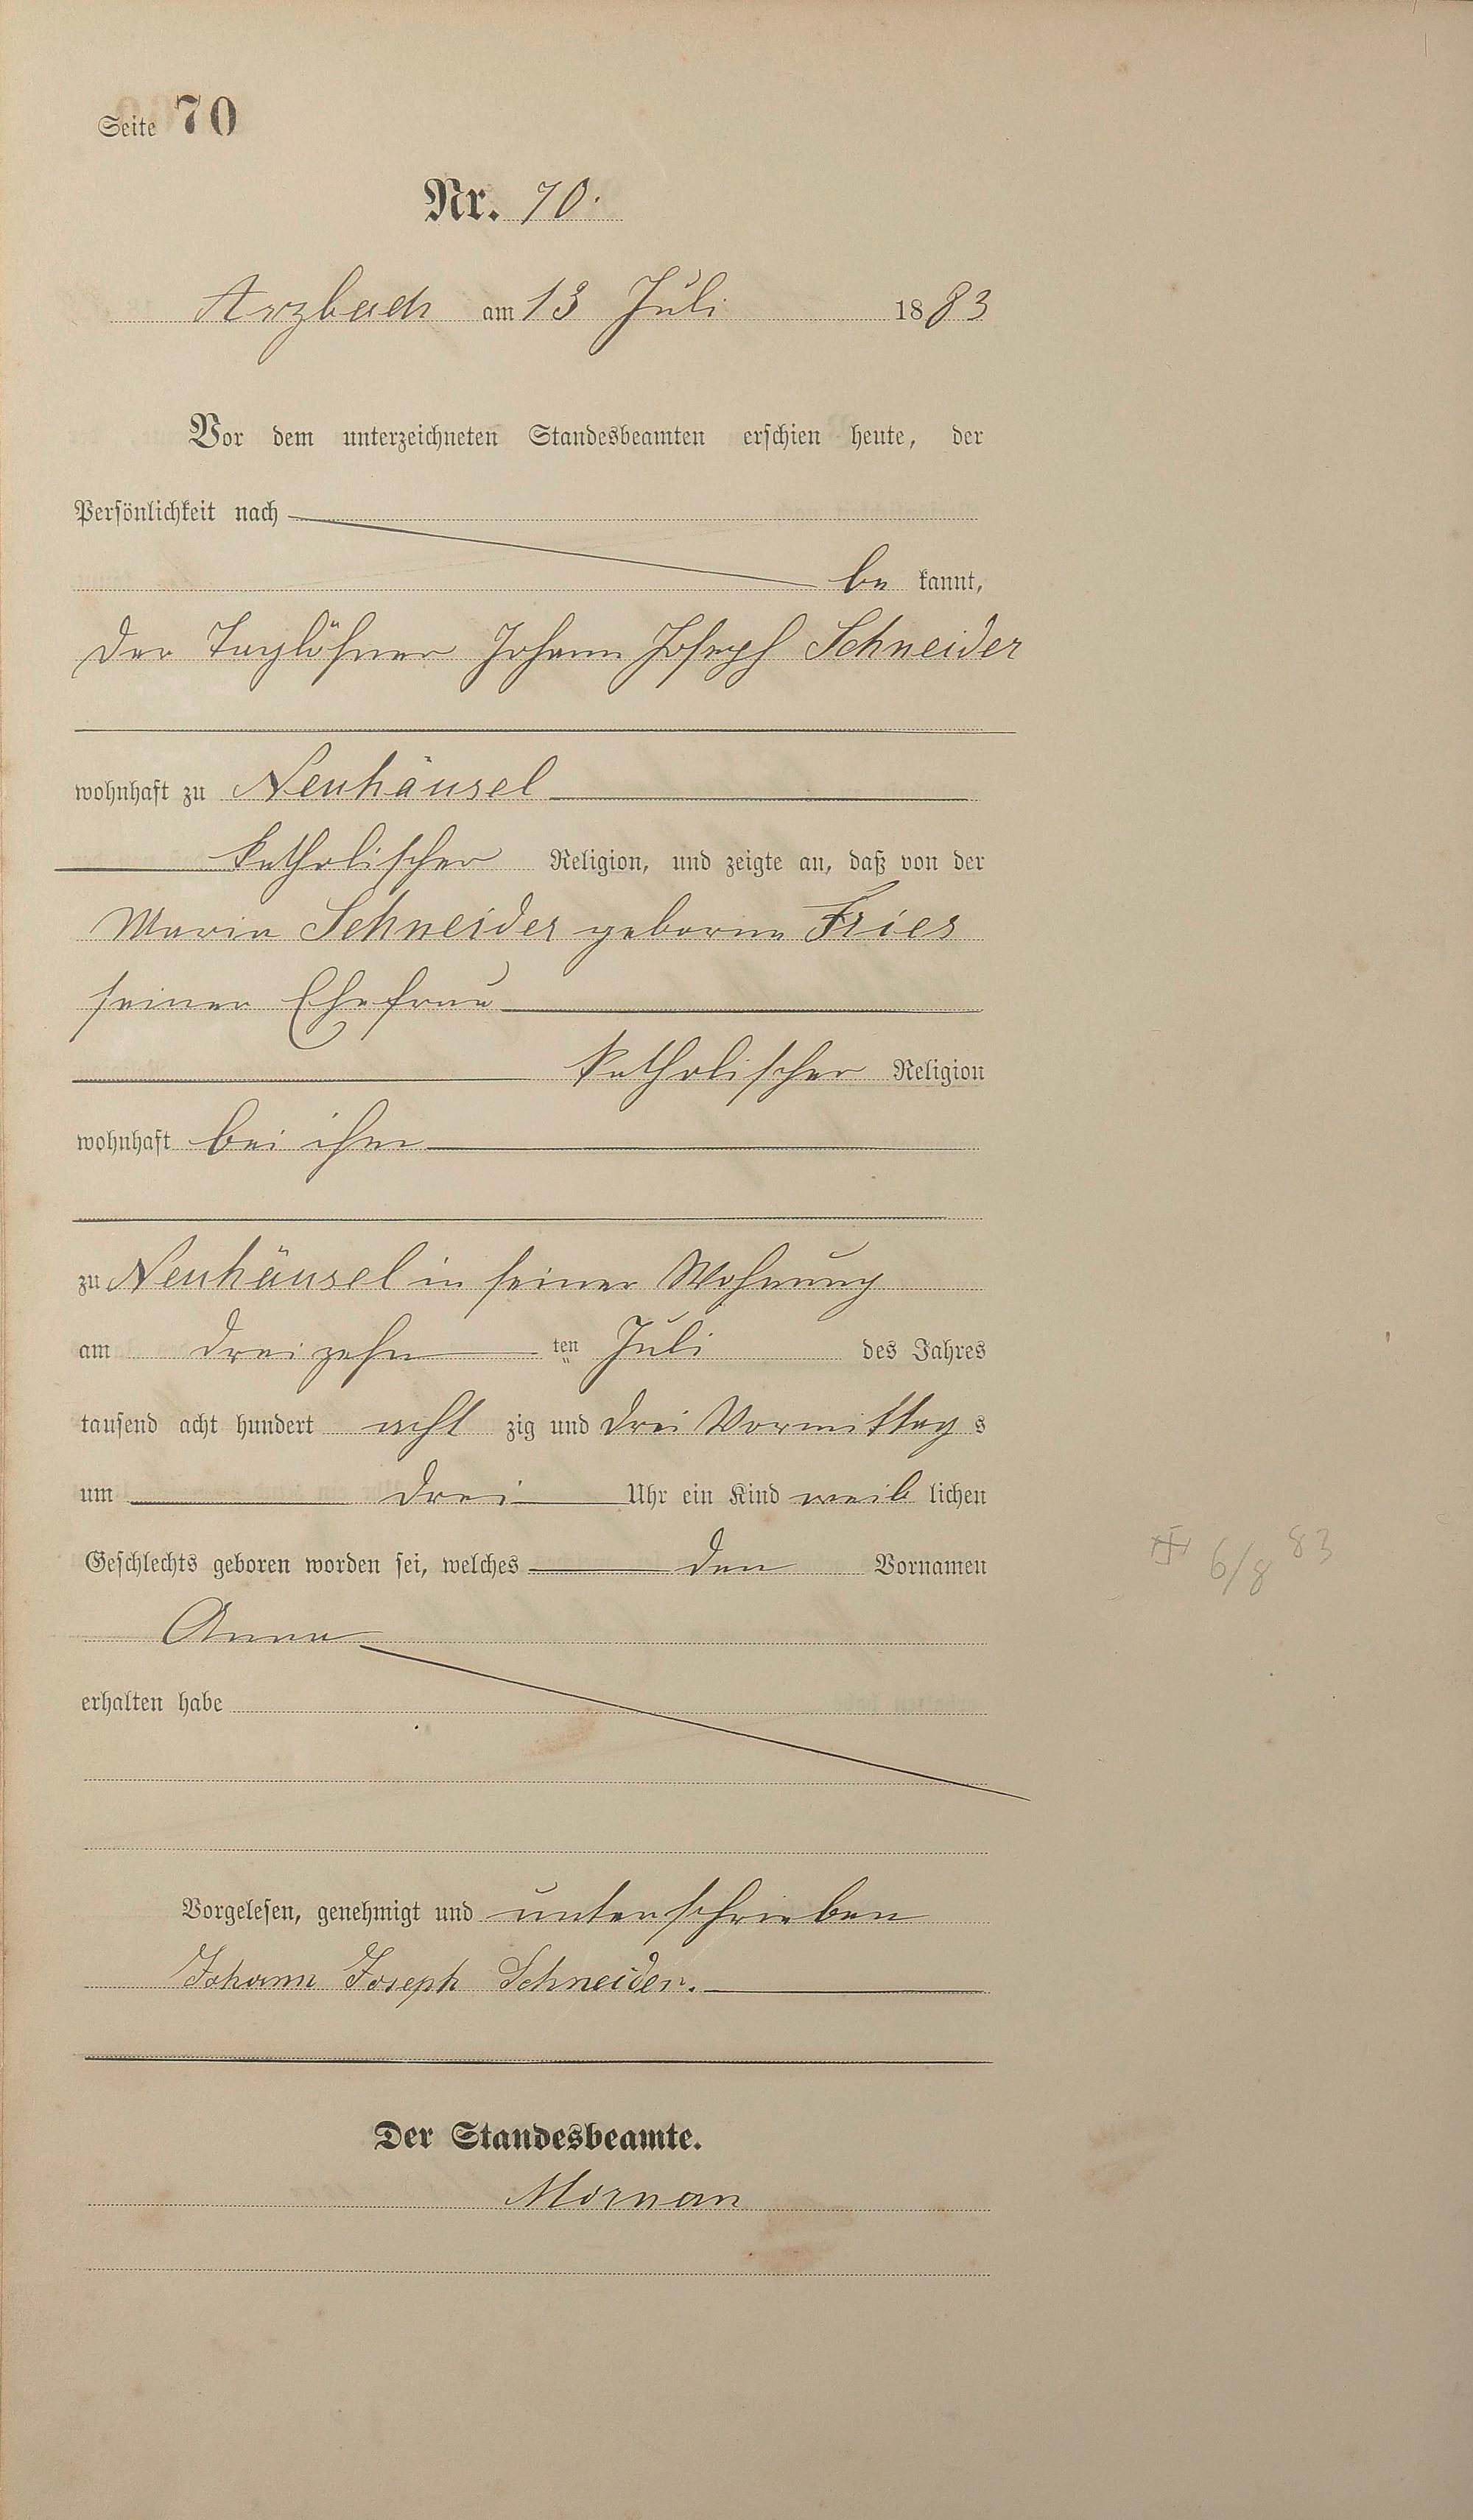 Seite 70
Nr. 70.
Arzbach am 13 Juli 1883
Vor dem unterzeichneten Standesbeamten erschien heute, der
Persönlichkeit nach
be kannt,
der Taglöhner Johann Joseph Schneider
wohnhaft zu Neuhäusel
katholischer Religion, und zeigte an, daß von der
Maria Schneider geborne Fries
seiner Ehefrau
katholischer Religion
wohnhaft bei ihm
zu Neuhäusel in seiner Wohnung
am dreizehn ten Juli des Jahres
tausend acht hundert acht zig und drei Vormittag s
um drei Uhr ein Kind weib lichen
Geschlechts geboren worden sei, welches den Vornamen
Anna
erhalten habe
Vorgelesen, genehmigt und unterschrieben
Johann Joseph Schneider.
Der Standesbeamte.
6/8 83